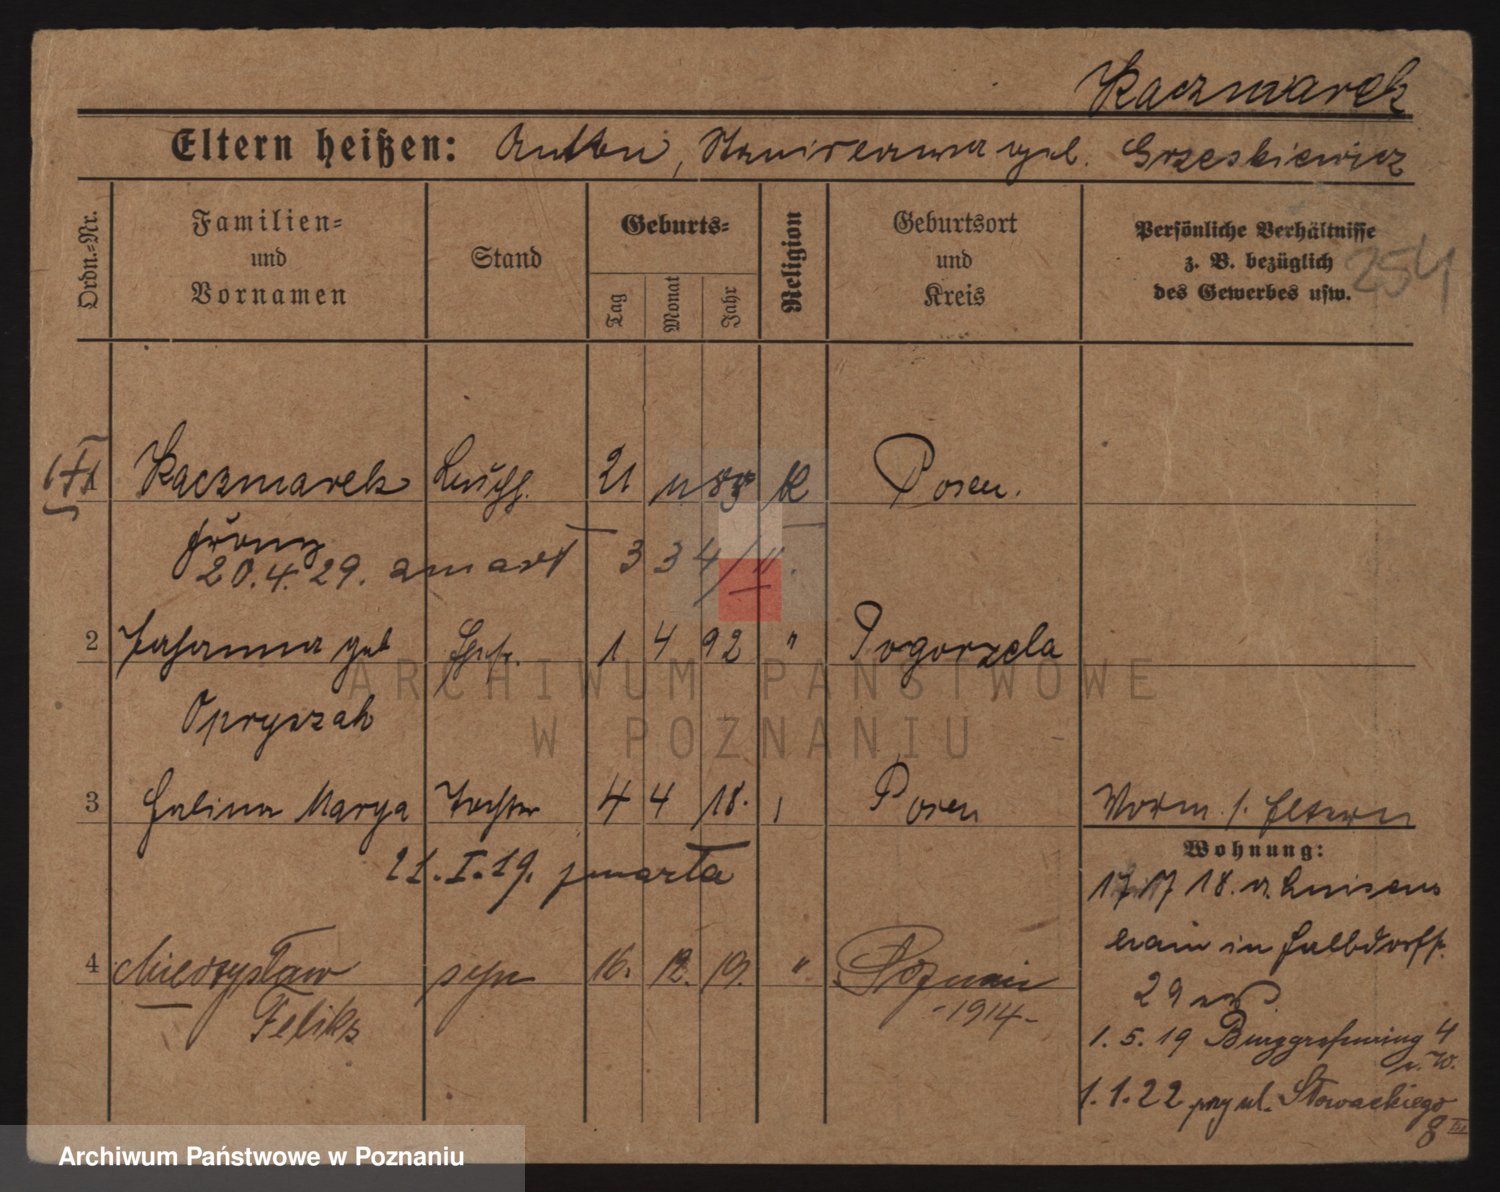 Kaczmarek
Eltern heißen: Anton, Stanislawa geb. Grzeskiewicz
Ordn.-Nr.
Familien-
und
Vornamen
Stand
Geburts-
Tag
Monat
Jahr
Religion
Geburtsort
und
Kreis
Persönliche Verhältnisse
z. B. bezüglich
des Gewerbes usw.
254
1 Kaczmarek 21 11 88 K Posen.
Franz
20.4.29. 3 3 4/II.
2 Johanna geb 1 4 92 " Pogorzela
Opryszak
3 Halina Marya Tochter 4 4 18. Posen
21.I.19. zmarła
4 Mieczysław syn 16. 12. 19. " Poznań
Feliks -1914-
Vorm. s. Eltern
Wohnung:
17 18. Luisen
hain in Halbdorfstr.
29
1.5.19 Burggrafenring 4
1.1.22 przy ul. Słowackiego
8 III
ARCHIWUM PAŃSTWOWE
W POZNANIU
Archiwum Państwowe w Poznaniu